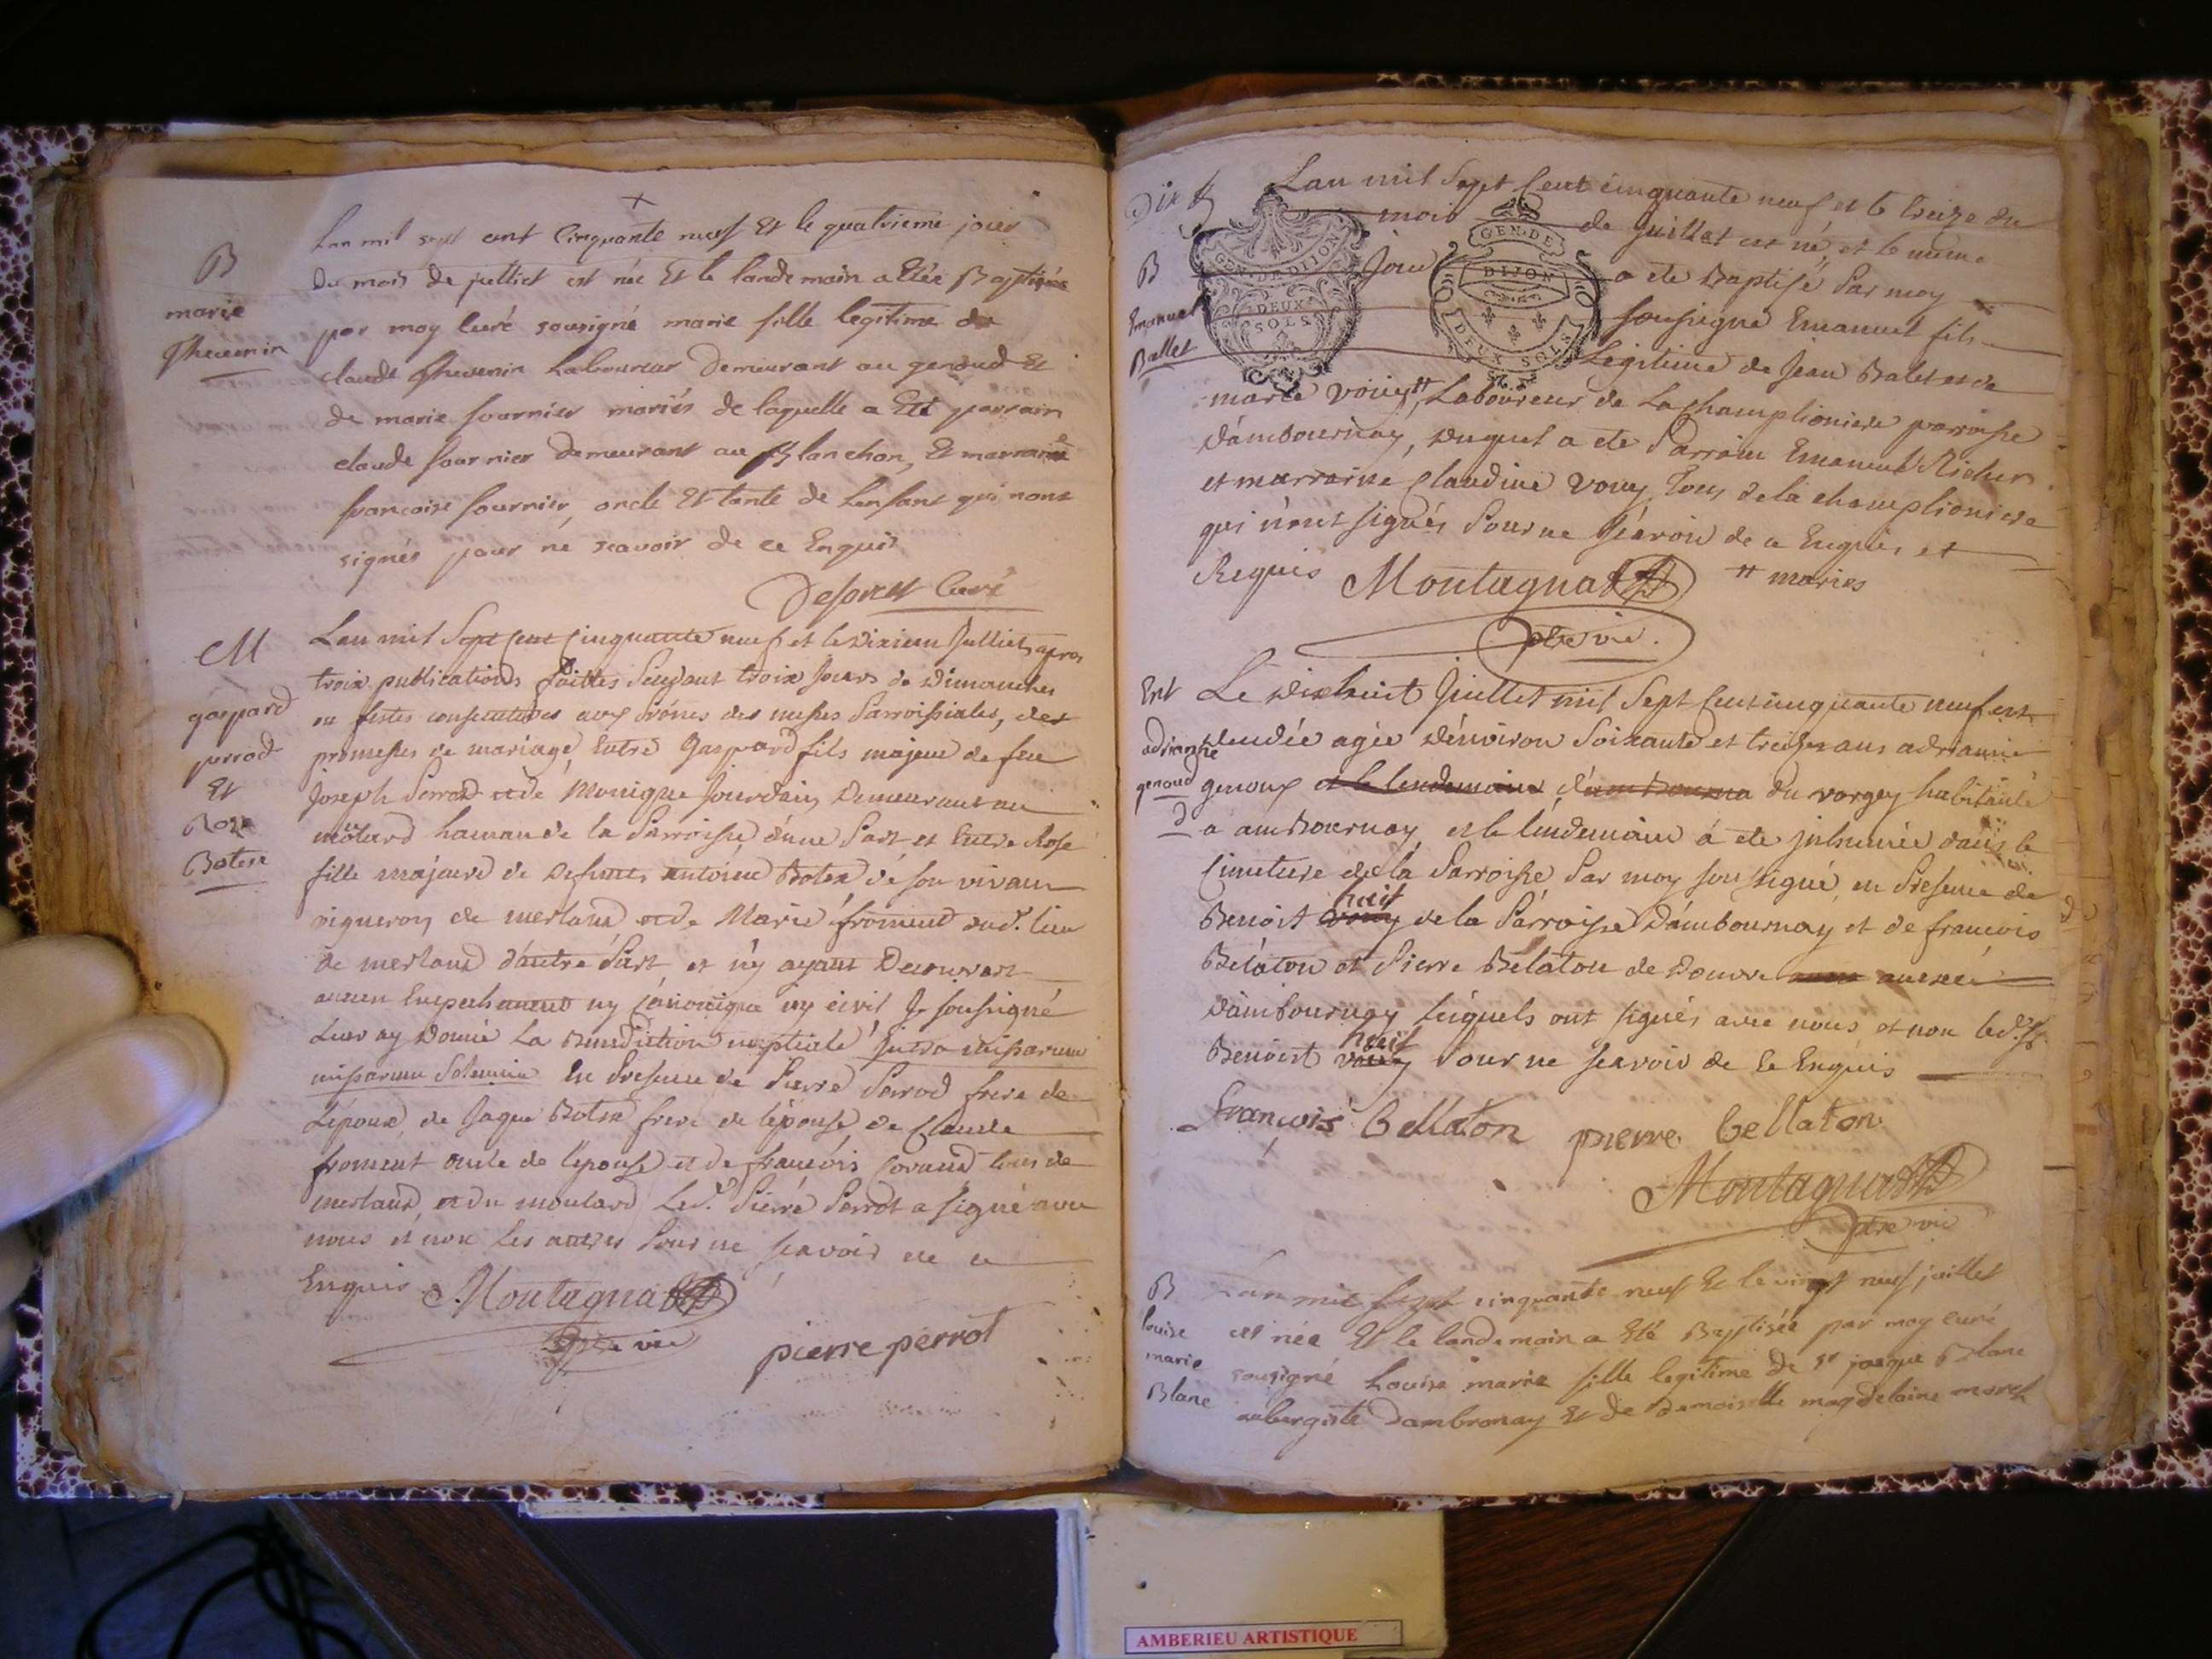 B
marie
Thevenin
Lan mil sept cent Cinquante neuf Et le quatrieme jour
du mois de juilliet est née Et le landemain a Etée Baptisée
par moy curé sousigné marie fille legitime de
claude Thevenin Laboureur Demeurant au genoud Et
de marie fournier mariés de laquelle a Eté parrain
claude fournier demeurant au Blanchon, Et marraine
francoise fournier, oncle Et tante de Lenfant qui nont
signés pour ne scavoir de ce Enquis
Curé
M
gaspard
perrod
Et
Roze
Botex
Lan mil Sept Cent Cinquante neuf et le dixieme Julliet, apres
trois publications faittes pendant trois jours de dimanches
ou festes consecutives aux prônes des messes Parroissiales, des
promesses de mariage, Entre Gaspard fils majeur de feu
Joseph Perrod et de Monique Jourdain demeurant au
molard hamau de la Parroisse, d'une Part et Entre Rose
fille majeure de defunt antoine Botex de son vivant
vigneron de merland et de Marie froment dud. lieu
de merland d'autre Part et n'y ayant Decouvert
aucun Empechement ny Canonique ny civil Je soussigné
Leur ay donné La Benediction nuptiale Intra missarum
missarum Solemnia En Presence de Pierre Perrod frere de
L'époux, de Jaque Botex frere de l'épouse, de Claude
froment oncle de l'epouse et de francois Coraud tous de
merland, et du moulard Led. Pierre Perrot a signé avec
nous et non les autres Pour ne scavoir de ce
Enquis Montagnat
ptre vic
pierre perrot
Dix
GEN. DE DIJON
DEUX
SOLS
GEN. DE
DIJON
DEUX SOLS
B
Emanuel
Ballet
Lan mil Sept Cent cinquante neuf et le treize du
mois de Juillet est né, et le meme
Jour a ete Baptisé Par moy
soussigné Emanuel fils
Legitime de Jean Balet et de
marie vouy ++, Laboureur de La championiere parroisse
d'ambournay, duquel a ete Parrain Emanuel
et marraine Claudine vouy Tous de la championiere
qui n'ont signés Pour ne scavoir de ce Enquis et
Requis Montagnat ++ mariés
ptre vic.
Ent
adrianne
genoud
Le dixhuit Juillet mil Sept Cent cinquante neuf est
decedée agée d'environ Soixante et treize ans adrianne
genoux et le lendemain d'ambourna du vorgey habitante
a ambournay, et le lendemain a ete inhumée dans le
Cimetiere de la Parroisse Par moy soussigné, en Presence de
huit
Benoit vouy de la Parroisse d'ambournay, et de francois
Bélaton et Pierre Bélaton de Douvre annexe
d'ambournay lesquels ont signés avec nous et non led.
huit
Benoit vouy Pour ne scavoir de ce Enquis
francois bellaton pierre bellaton
Montagnat
ptre vic
B
louise
marie
Blanc
Lan mil sept cinquante neuf Et le vingt neuf juillet
est née Et le landemain a Eté Baptisée par moy curé
sousigné Louise marie fille legitime de Sr jacque Blanc
aubergiste Dambronay Et de Demoiselle magdelaine morel
AMBERIEU ARTISTIQUE